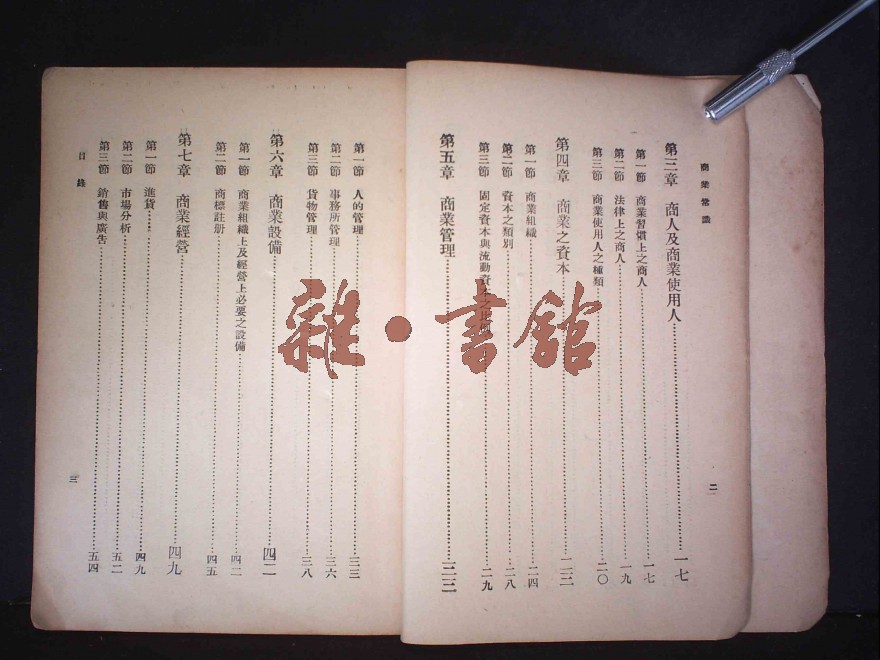 商業常識
第三章 商人及商業使用人……一七
第一節 商業習慣上之商人……一七
第二節 法律上之商人……一九
第三節 商業使用人之種類……二〇
第四章 商業之資本……二三
第一節 商業組織……二四
第二節 資本之類別……二八
第三節 固定資本與流動資本之……二九
第五章 商業管理……三三
二
第一節 人的管理……三三
第二節 事務所管理……三六
第三節 貨物管理……三八
第六章 商業設備……四二
第一節 商業組織上及經營上必要之設備……四二
第二節 商標註册……四五
第七章 商業經營……四九
第一節 進貨……四九
第二節 市場分析……五二
第三節 銷售與廣告……五四
目錄
三
雜·書館